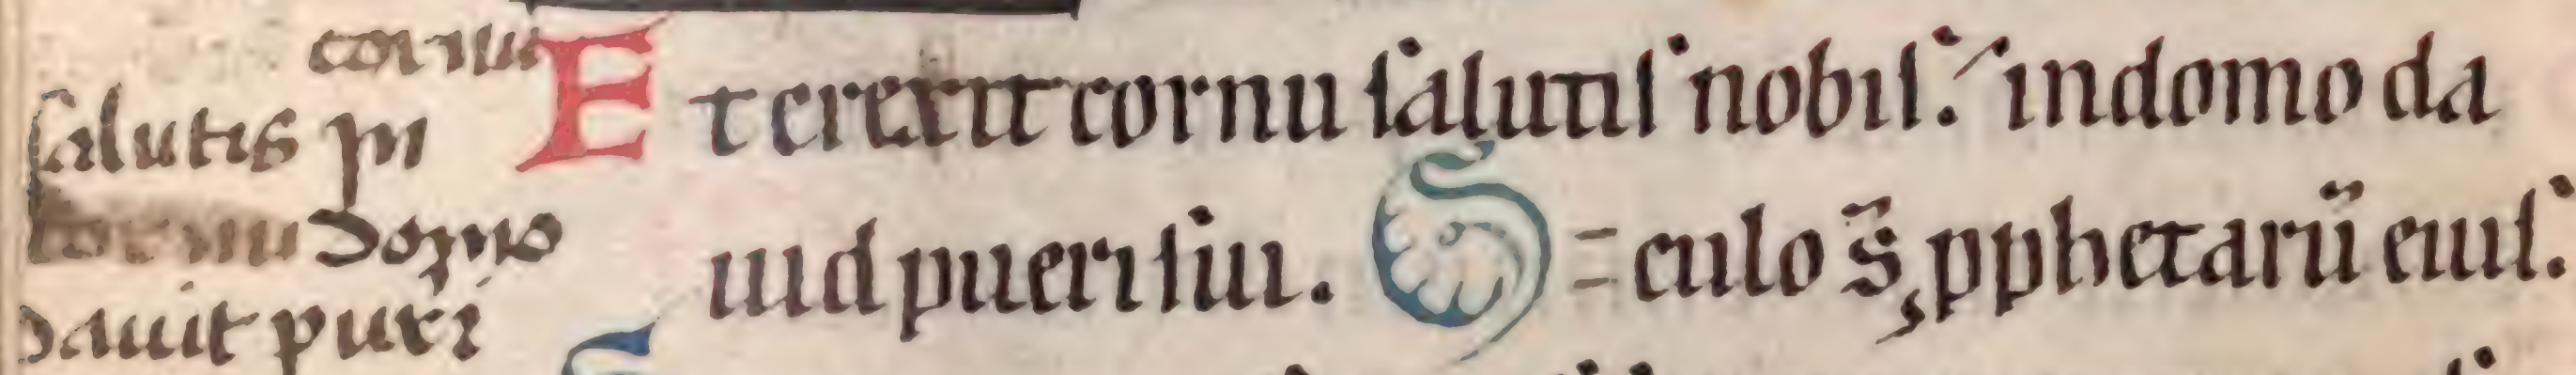 cornu
salutis in
cornu domo
dauit puri
Et erexit cornu salutis nobis. in domo da
uid pueri sui. S= culo s̄ pphetarū eius.